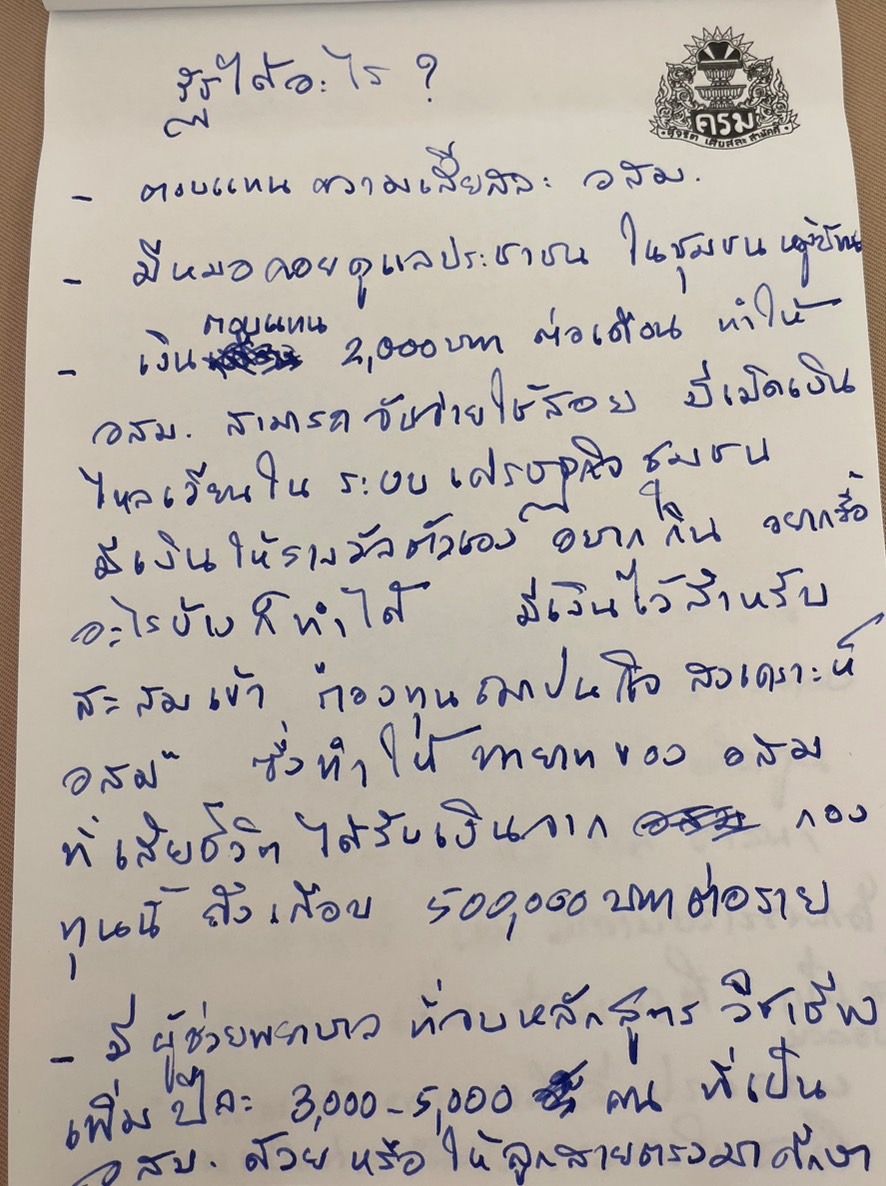 รัฐได้อะไร ?
ครม
สุจริต เสียสละ สามัคคี
- ตอบแทน ความเสียสละ อสม.
- มีหมอคอยดูแลประชาชน ในชุมชน หมู่บ้าน
ตอบแทน
- เงิน 2,000 บาท ต่อเดือน ทำให้
อสม. สามารถ จับจ่ายใช้สอย มีเม็ดเงิน
ไหลเวียนใน ระบบ เศรษฐกิจ ชุมชน
มีเงินให้รางวัลตัวเอง อยากกิน อยากซื้อ
อะไรบ้าง ก็ทำได้ มีเงินไว้สำหรับ
สะสมเข้า "กองทุนฌาปนกิจ สงเคราะห์
อสม" ซึ่งทำให้ ทายาทของ อสม
ที่เสียชีวิต ได้รับเงินจาก กอง
ทุนนี้ ถึงเกือบ 500,000 บาทต่อราย
- มี ผู้ช่วยพยาบาล ที่จบหลักสูตร วิชาชีพ
เพิ่ม ปีละ 3,000 - 5,000 คน ที่เป็น
อสม. ด้วย หรือ ให้ลูกสายตรงมาศึกษา